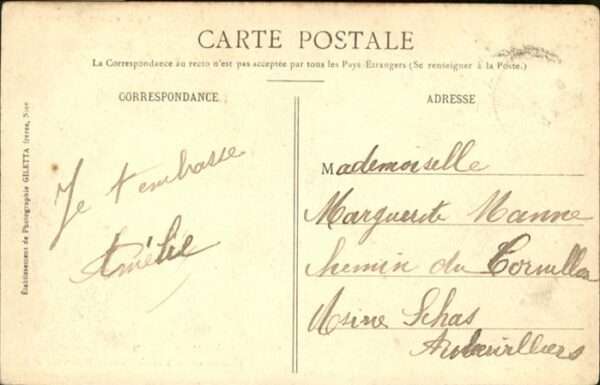 CARTE POSTALE
La Correspondance au recto n'est pas acceptée par tous les Pays Étrangers (Se renseigner à la Poste.)
CORRESPONDANCE
Je t'embrasse
Amélie
ADRESSE
Mademoiselle
Marguerite Manne
chemin du Cornillon
Usine Schas
Aubervilliers
Établissement de Photographie GILETTA frères, Nice